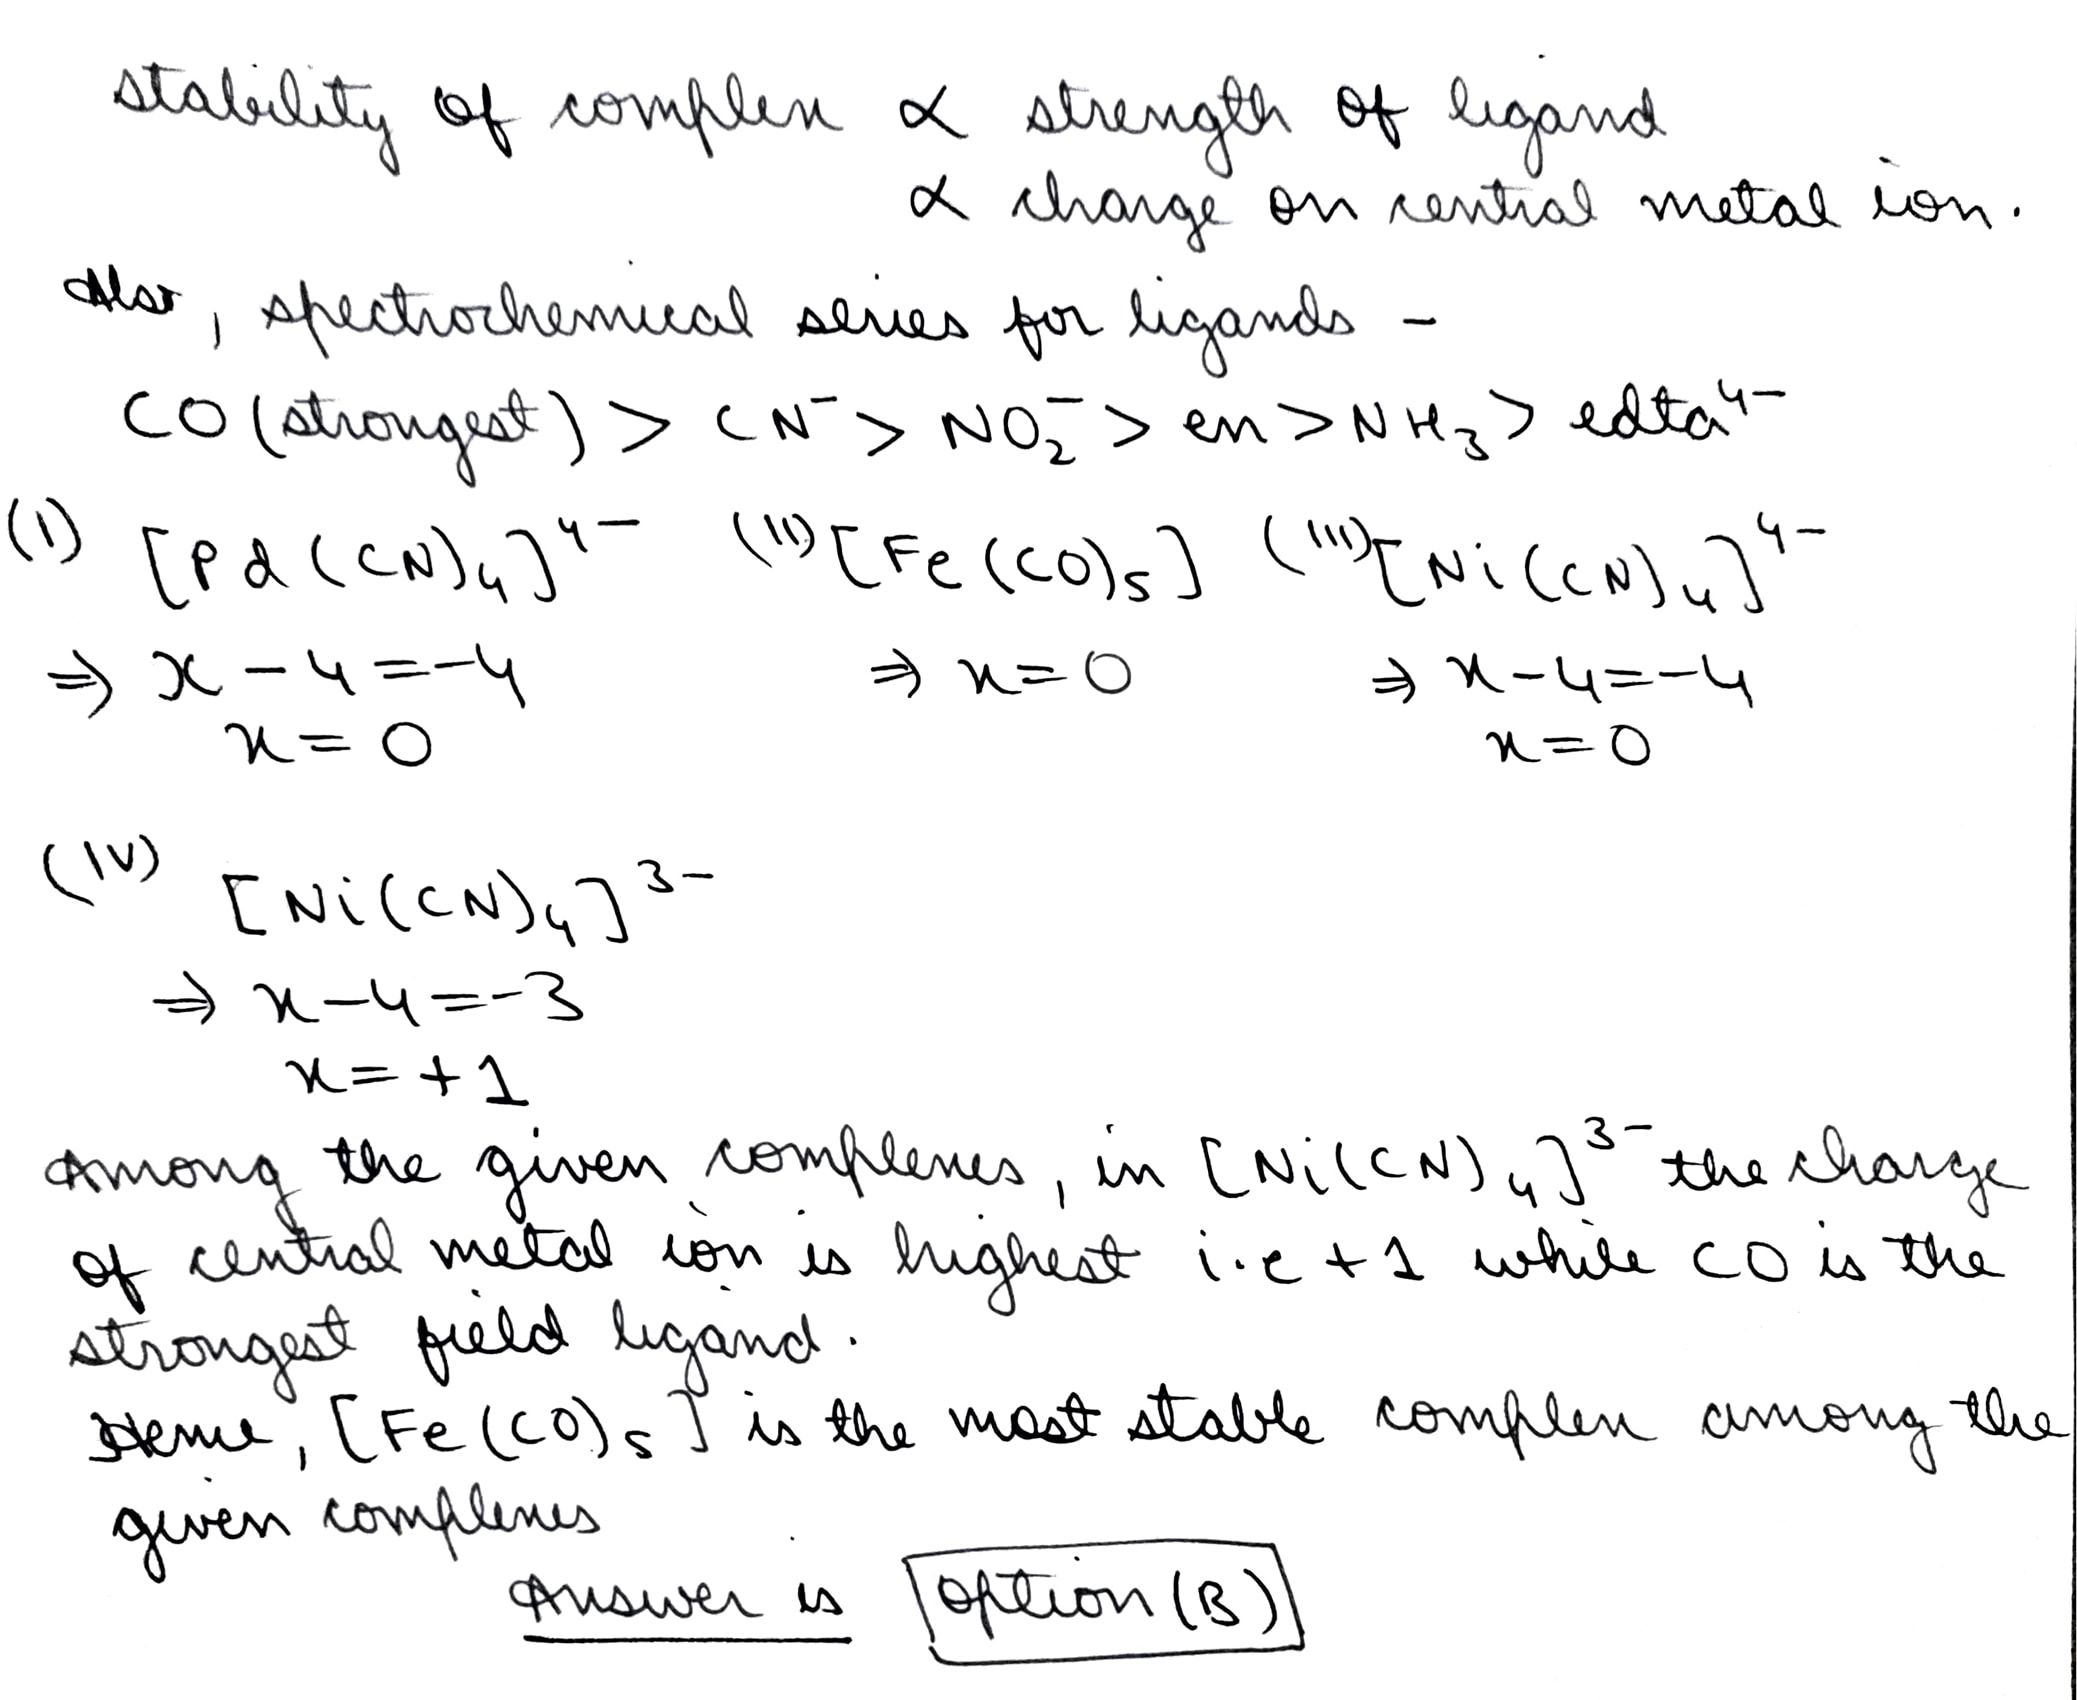 stability of complex ∝ strength of ligand
∝ charge on central metal ion.
Also, spectrochemical series for ligands -
CO (strongest) > CN⁻ > NO₂⁻ > en > NH₃ > edta⁴⁻
(I) [Pd(CN)₄]⁴⁻ (II) [Fe(CO)₅] (III) [Ni(CN)₄]⁴⁻
⇒ x - 4 = -4 ⇒ x = 0 ⇒ x - 4 = -4
x = 0 x = 0
(IV) [Ni(CN)₄]³⁻
⇒ x - 4 = -3
x = +1
Among the given complexes, in [Ni(CN)₄]³⁻ the charge
of central metal ion is highest i.e +1 while CO is the
strongest field ligand.
Hence, [Fe(CO)₅] is the most stable complex among the
given complexes
Answer is Option (B)